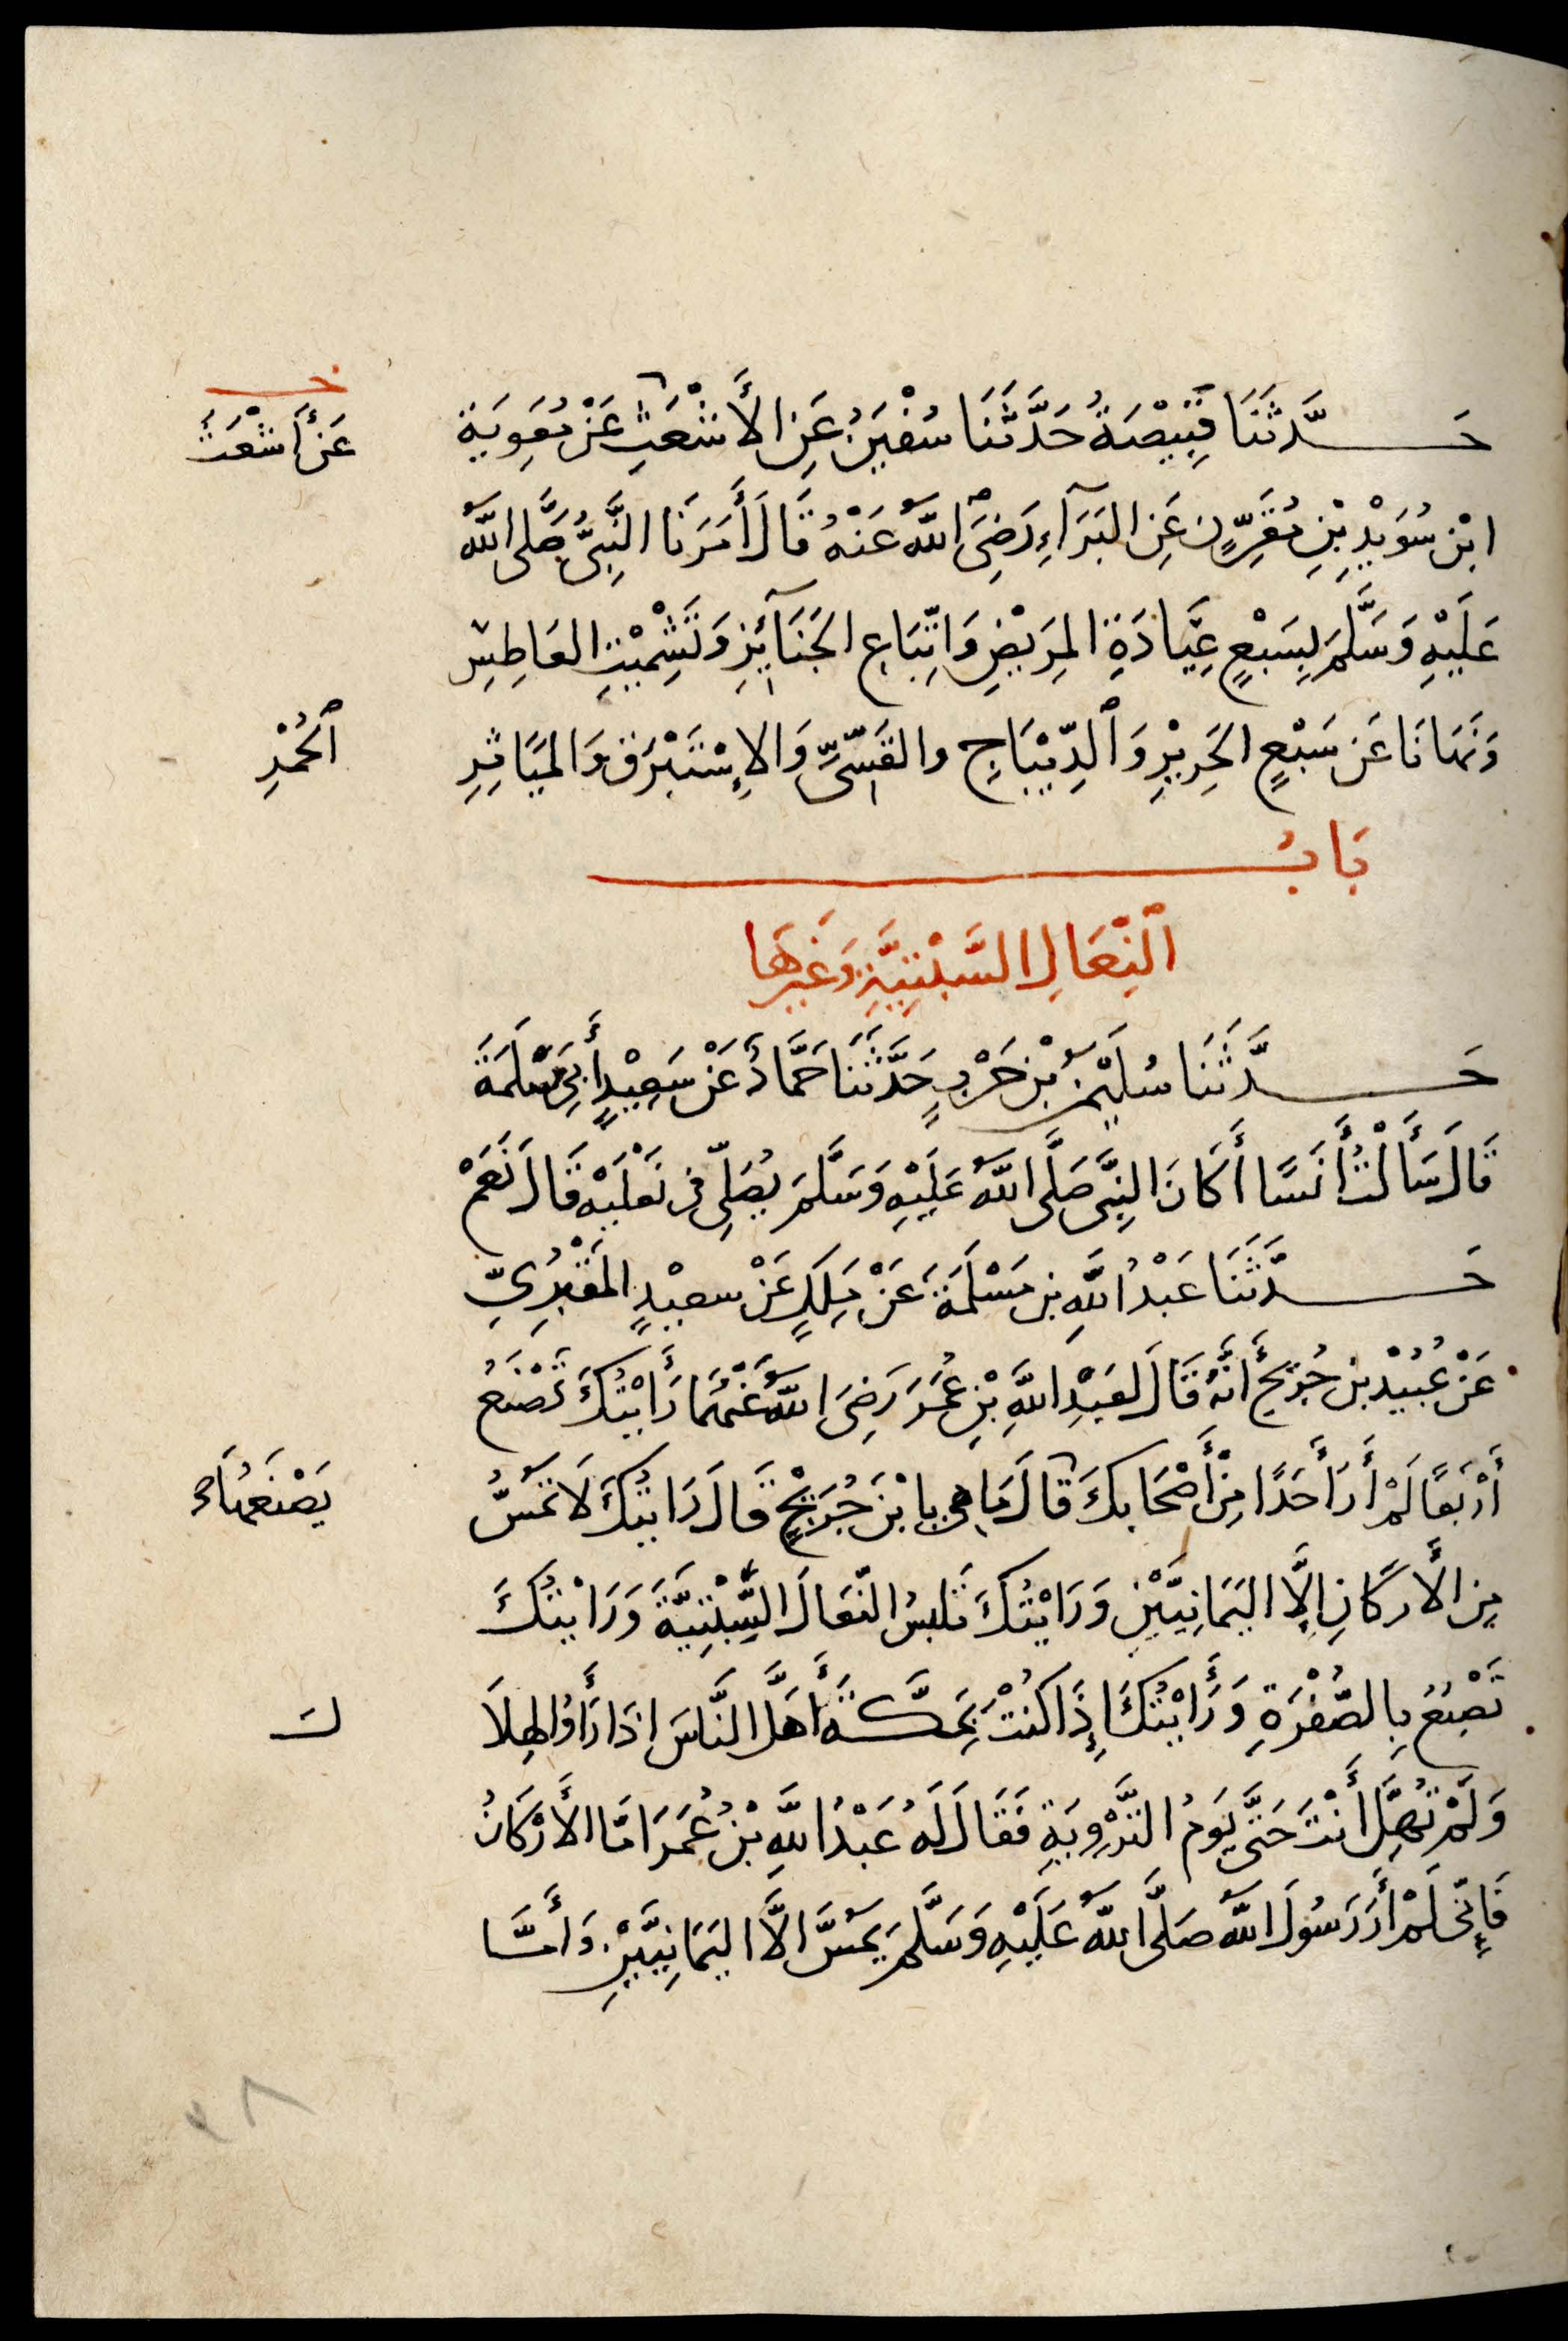 حَدَّثَنَا قَبِيْصَةُ حَدَّثَنَا سُفْيَنُ عَنِ الأَشْعَثِ عَنْ مُعَوِيَة
خ
عَنْ أَشْعَثَ
ابْن سُوَيْدِ بْنِ مُقَرِّنٍ عَنِ البَرَآءِ رَضِيَ اللَّهُ عَنْهُ قَالَ أَمَرَنَا النَّبِيُّ صَلَّى اللَّهُ
عَلَيْهِ وَسَلَّمَ بِسَبْعٍ عِيَادَةِ المَرِيْضِ وَاتِّبَاعِ الجَنَائِزِ وَتَشْمِيْتِ العَاطِسِ
وَنَهَانَا عَن سَبْعٍ الحَرِيْرِ وَالدِّيْبَاجِ والقَسِّيِّ وَالإِسْتَبْرَقِ وَالمَيَاثِرِ
الحُمْرِ
بَابُ
النِّعَالِ السَّبْتِيَّةِ وَغَيْرِهَا
حَدَّثَنَا سُلَيْمَنُ بْن حَرْبٍ حَدَّثَنَا حَمَّادٌ عَنْ سَعِيْدٍ أَبِي مَسْلَمَةَ
قَالَ سَأَلْتُ أَنَسًا أَكَانَ النَّبِيُّ صَلَّى اللَّهُ عَلَيْهِ وَسَلَّمَ يُصَلِّي فِي نَعْلَيْهِ قَالَ نَعَمْ
حَدَّثَنَا عَبْدُ اللَّهِ بن مَسْلَمَةَ عَنْ مَلِكٍ عَنْ سعيْدٍ المَقْبُرِيِّ
عَنْ عُبَيْدِ بْن جُرَيْجٍ أَنَّهُ قَالَ لعَبْدِ اللَّهِ بْنِ عُمَرَ رَضِيَ اللَّهُ عَنْهُمَا رَأَيْتُكَ تَصْنَعُ
أَرْبَعًا لَمْ أَرَ أَحَدًا مِنْ أَصْحَابكَ قَالَ مَا هي يا ابْنَ جُرَيْجٍ قَالَ رَايتُكَ لَا تَمَسُّ
يَصْنَعُهَا
مِن الأَركَانِ إِلَّا اليَمَانِيَّيْنِ وَرَايْتُكَ تَلبسُ النِّعَالَ السِّبْتِيَّةَ وَرَايْتُكَ
تَصْبُغُ بِالصُّفْرَةِ وَرَأَيْتُكَ إِذَا كُنْتَ بِمَكَّةَ أَهَلَّ النَّاسُ إذَا رَأَوُا الهِلَا
لَ
وَلَمْ تُهِلَّ أَنْتَ حَتَّى يَوْمُ التَّرْوِيَةِ فَقَالَ لَهُ عَبْدُ اللَّهِ بْنُ عُمَرَ امَّا الأَرْكَانُ
فَإِنِّي لَمْ أَرَ رَسُولَ اللَّهِ صَلَّى اللَّهُ عَلَيْهِ وَسَلَّمَ يَمَسُّ الَّا اليَمَانِيَّيْنِ وَأَمَّا